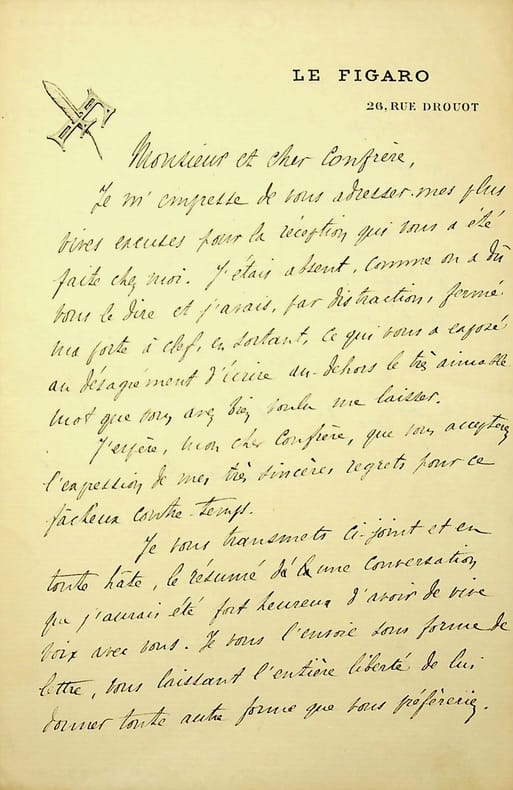 LE FIGARO
26, RUE DROUOT
Monsieur et cher Confrère,
Je m'empresse de vous adresser mes plus
vives excuses pour la réception qui vous a été
faite chez moi. J'étais absent, comme on a dû
vous le dire et j'avais, par distraction, fermé
ma porte à clef, en sortant, ce qui vous a exposé
au désagrément d'écrire au-dehors le très aimable
mot que vous avez bien voulu me laisser.
J'espère, mon cher Confrère, que vous accepterez
l'expression de mes très sincères regrets pour ce
fâcheux contre-temps.
Je vous transmets ci-joint et en
toute hâte, le résumé d'une conversation
que j'aurais été fort heureux d'avoir de vive
voix avec vous. Je vous l'envoie sous forme de
lettre, vous laissant l'entière liberté de lui
donner toute autre forme que vous préféreriez.